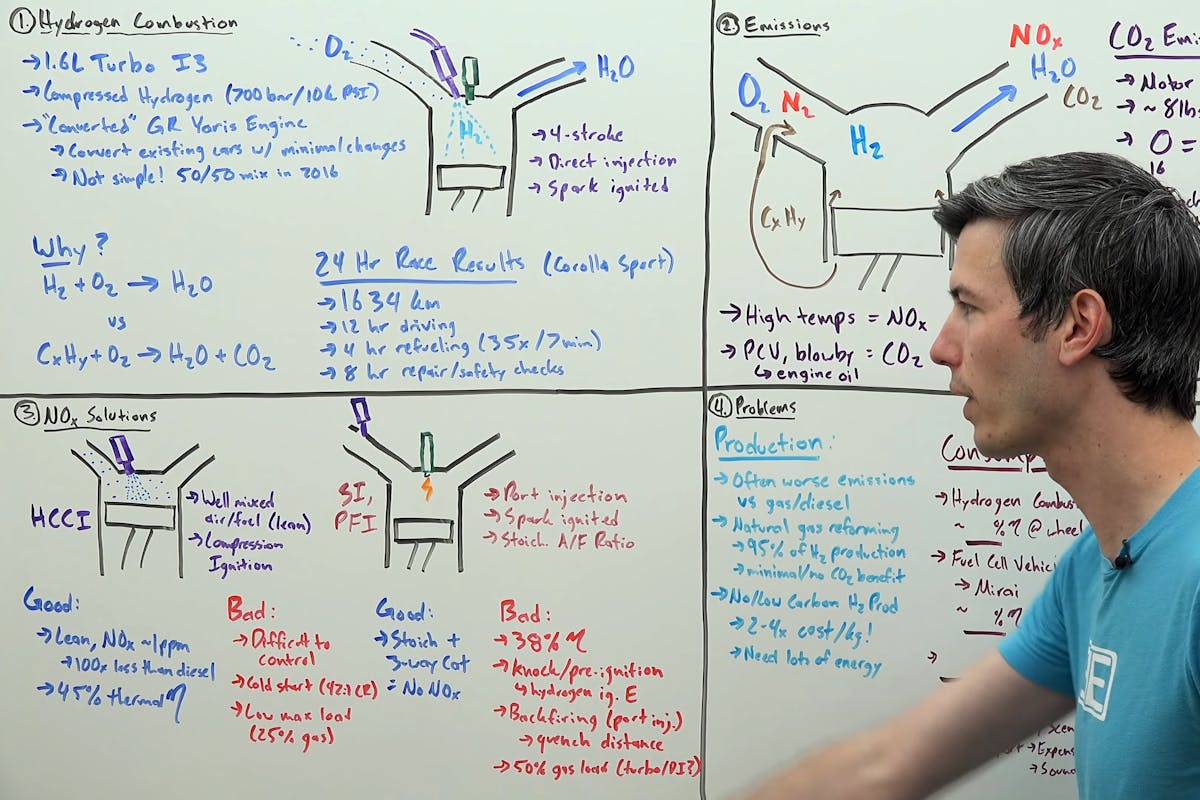 1. Hydrogen Combustion
→1.6L Turbo I3
→Compressed Hydrogen (700bar/10k PSI)
→"Converted" GR Yaris Engine
→Convert existing cars w/ minimal changes
→Not simple! 50/50 mix in 2016
O2
H2O
H2
→4-stroke
→Direct injection
→Spark ignited
Why?
H2 + O2 → H2O
vs
CxHy + O2 → H2O + CO2
24 Hr Race Results (Corolla Sport)
→1634 km
→12 hr driving
→4 hr refueling (35x/7min)
→8 hr repair/safety checks
2. Emissions
O2 N2
H2
NOx
H2O
CO2
CxHy
→High temps = NOx
→PCV, blowby = CO2
↳engine oil
CO2
→Motor
→~8lbs
→O =
16
3. NOx Solutions
HCCI
→Well mixed
air/fuel (lean)
→Compression
Ignition
Good:
→Lean, NOx ~1ppm
→100x less than diesel
→45% thermal η
Bad:
→Difficult to
control
→Cold start (42:1 CR)
→Low max load
(25% gas)
SI,
PFI
→Port injection
→Spark ignited
→Stoich. A/F Ratio
Good:
→Stoich +
3-way Cat
= No NOx
Bad:
→38% η
→knock/pre-ignition
↳hydrogen ig. E
→Backfiring (port inj.)
→quench distance
→50% gas load (turbo/DI?)
4. Problems
Production:
→Often worse emissions
vs gas/diesel
→Natural gas reforming
→95% of H2 production
→minimal/no CO2 benefit
→No/Low Carbon H2 Prod
→2-4x cost/kg!
→Need lots of energy
→Hydrogen
~ __%η @ wheel
→Fuel Cell
→Mirai
~ __%η
→
E